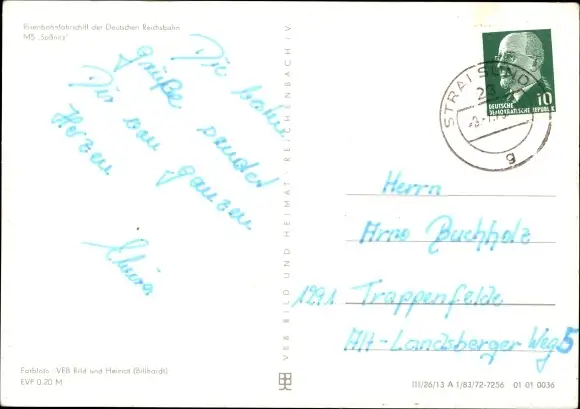 Eisenbahnfährschiff der Deutschen Reichsbahn
MS „Saßnitz"
Die
grüße sendet
Dir von ganzem
Herzen
VEB BILD UND HEIMAT · REICHENBACH I. V.
STRALSUND
23
g
DEUTSCHE
DEMOKRATISCHE REPUBLIK
10
Herrn
Arno Buchholz
1291 Trappenfelde
Alt-Landsberger Weg 5
Farbfoto: VEB Bild und Heimat (Billhardt)
EVP 0.20 M
III/26/13 A 1/83/72-7256 01 01 0036